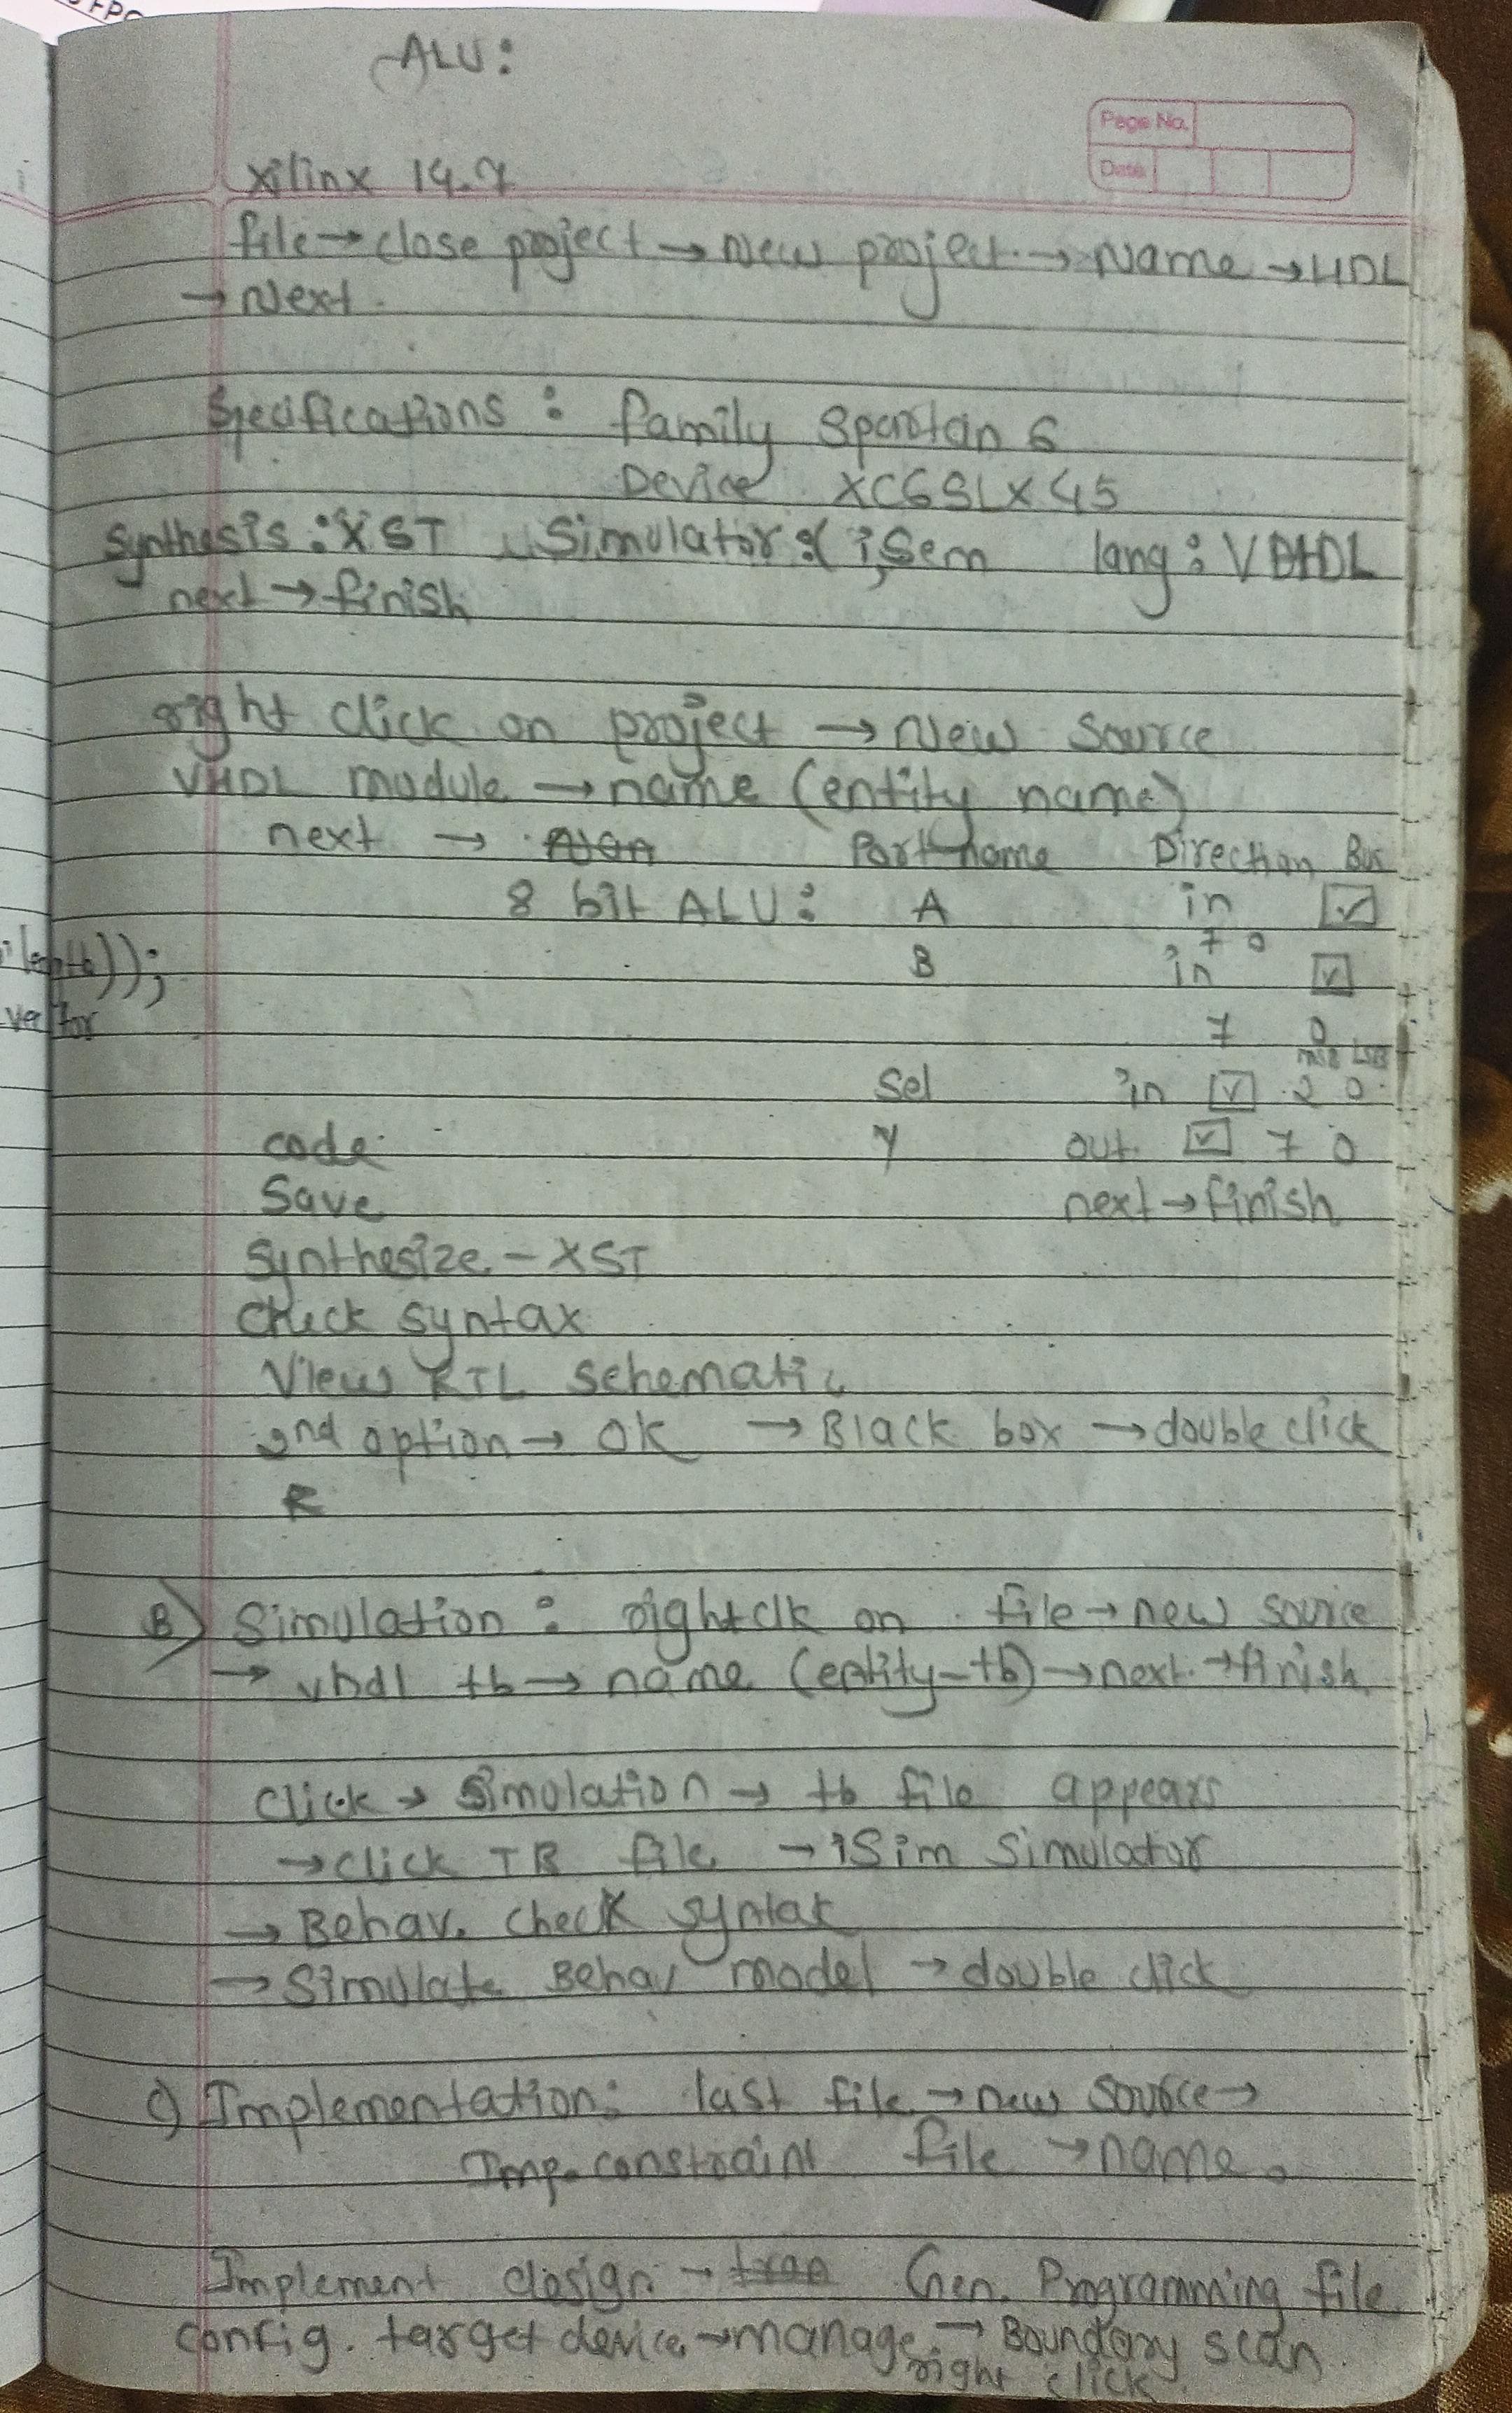 ALU:
Page No.
Date
Xilinx 14.7
file → close project → New project → Name → HDL
→ Next.
Specifications : family Spartan 6
Device XC6SLX45
Synthesis : XST Simulator : iSem lang : VHDL
next → finish
right click on project → New Source
VHDL module → name (entity name)
next → Port name Direction Bus
8 bit ALU : A in ☑
7 0
B in ☑
7 0
MSB LSB
Sel in ☑ 2 0
code Y out ☑ 7 0
Save next → finish
Synthesize - XST
Check syntax
View RTL Schematic
2nd option → OK → Black box → double click
R
B) Simulation : rightclk on file → new source
→ vhdl tb → name (entity-tb) → next → finish
Click → Simulation → tb file appears
→ click TB file → iSim Simulator
→ Behav. check syntax
→ Simulate Behav model → double click
C) Implementation: last file → new source →
Imp. constraint file → name.
Implement design → Gen. Programming file
config. target device → manage → Boundary scan
right click.
));